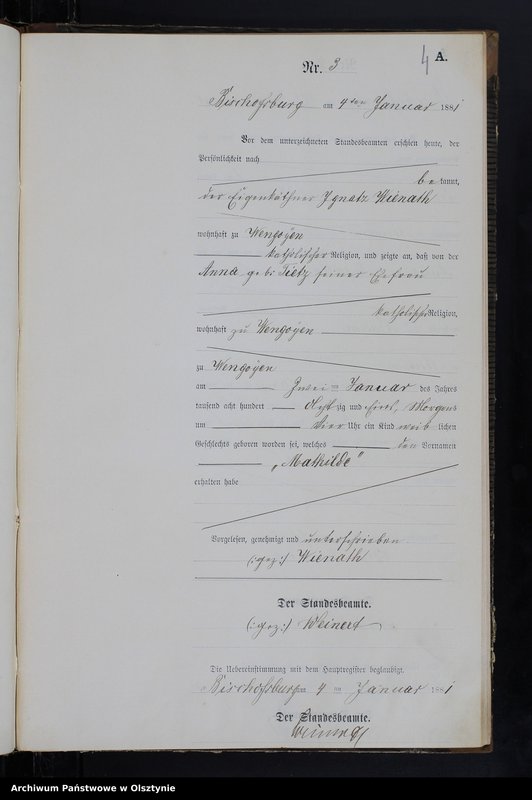 4 A.
Nr. 3
Bischofsburg am 4ten Januar 1881
Vor dem unterzeichneten Standesbeamten erschien heute, der
Persönlichkeit nach
bekannt,
der Eigenkäthner Ignatz Wienath
wohnhaft zu Wengoyen
katholischer Religion, und zeigte an, daß von der
Anna geb: Tietz seiner Ehefrau
katholischer Religion,
wohnhaft zu Wengoyen
zu Wengoyen
am Zwei ten Januar des Jahres
tausend acht hundert Achtzig und Eins, Morgens
um Vier Uhr ein Kind weiblichen
Geschlechts geboren worden sei, welches den Vornamen
„Mathilde"
erhalten habe
Vorgelesen, genehmigt und unterschrieben
(:gez:) Wienath
Der Standesbeamte.
(:gez:) Weinert
Die Uebereinstimmung mit dem Hauptregister beglaubigt.
Bischofsburg am 4 ten Januar 1881
Der Standesbeamte.
Weinert
Archiwum Państwowe w Olsztynie